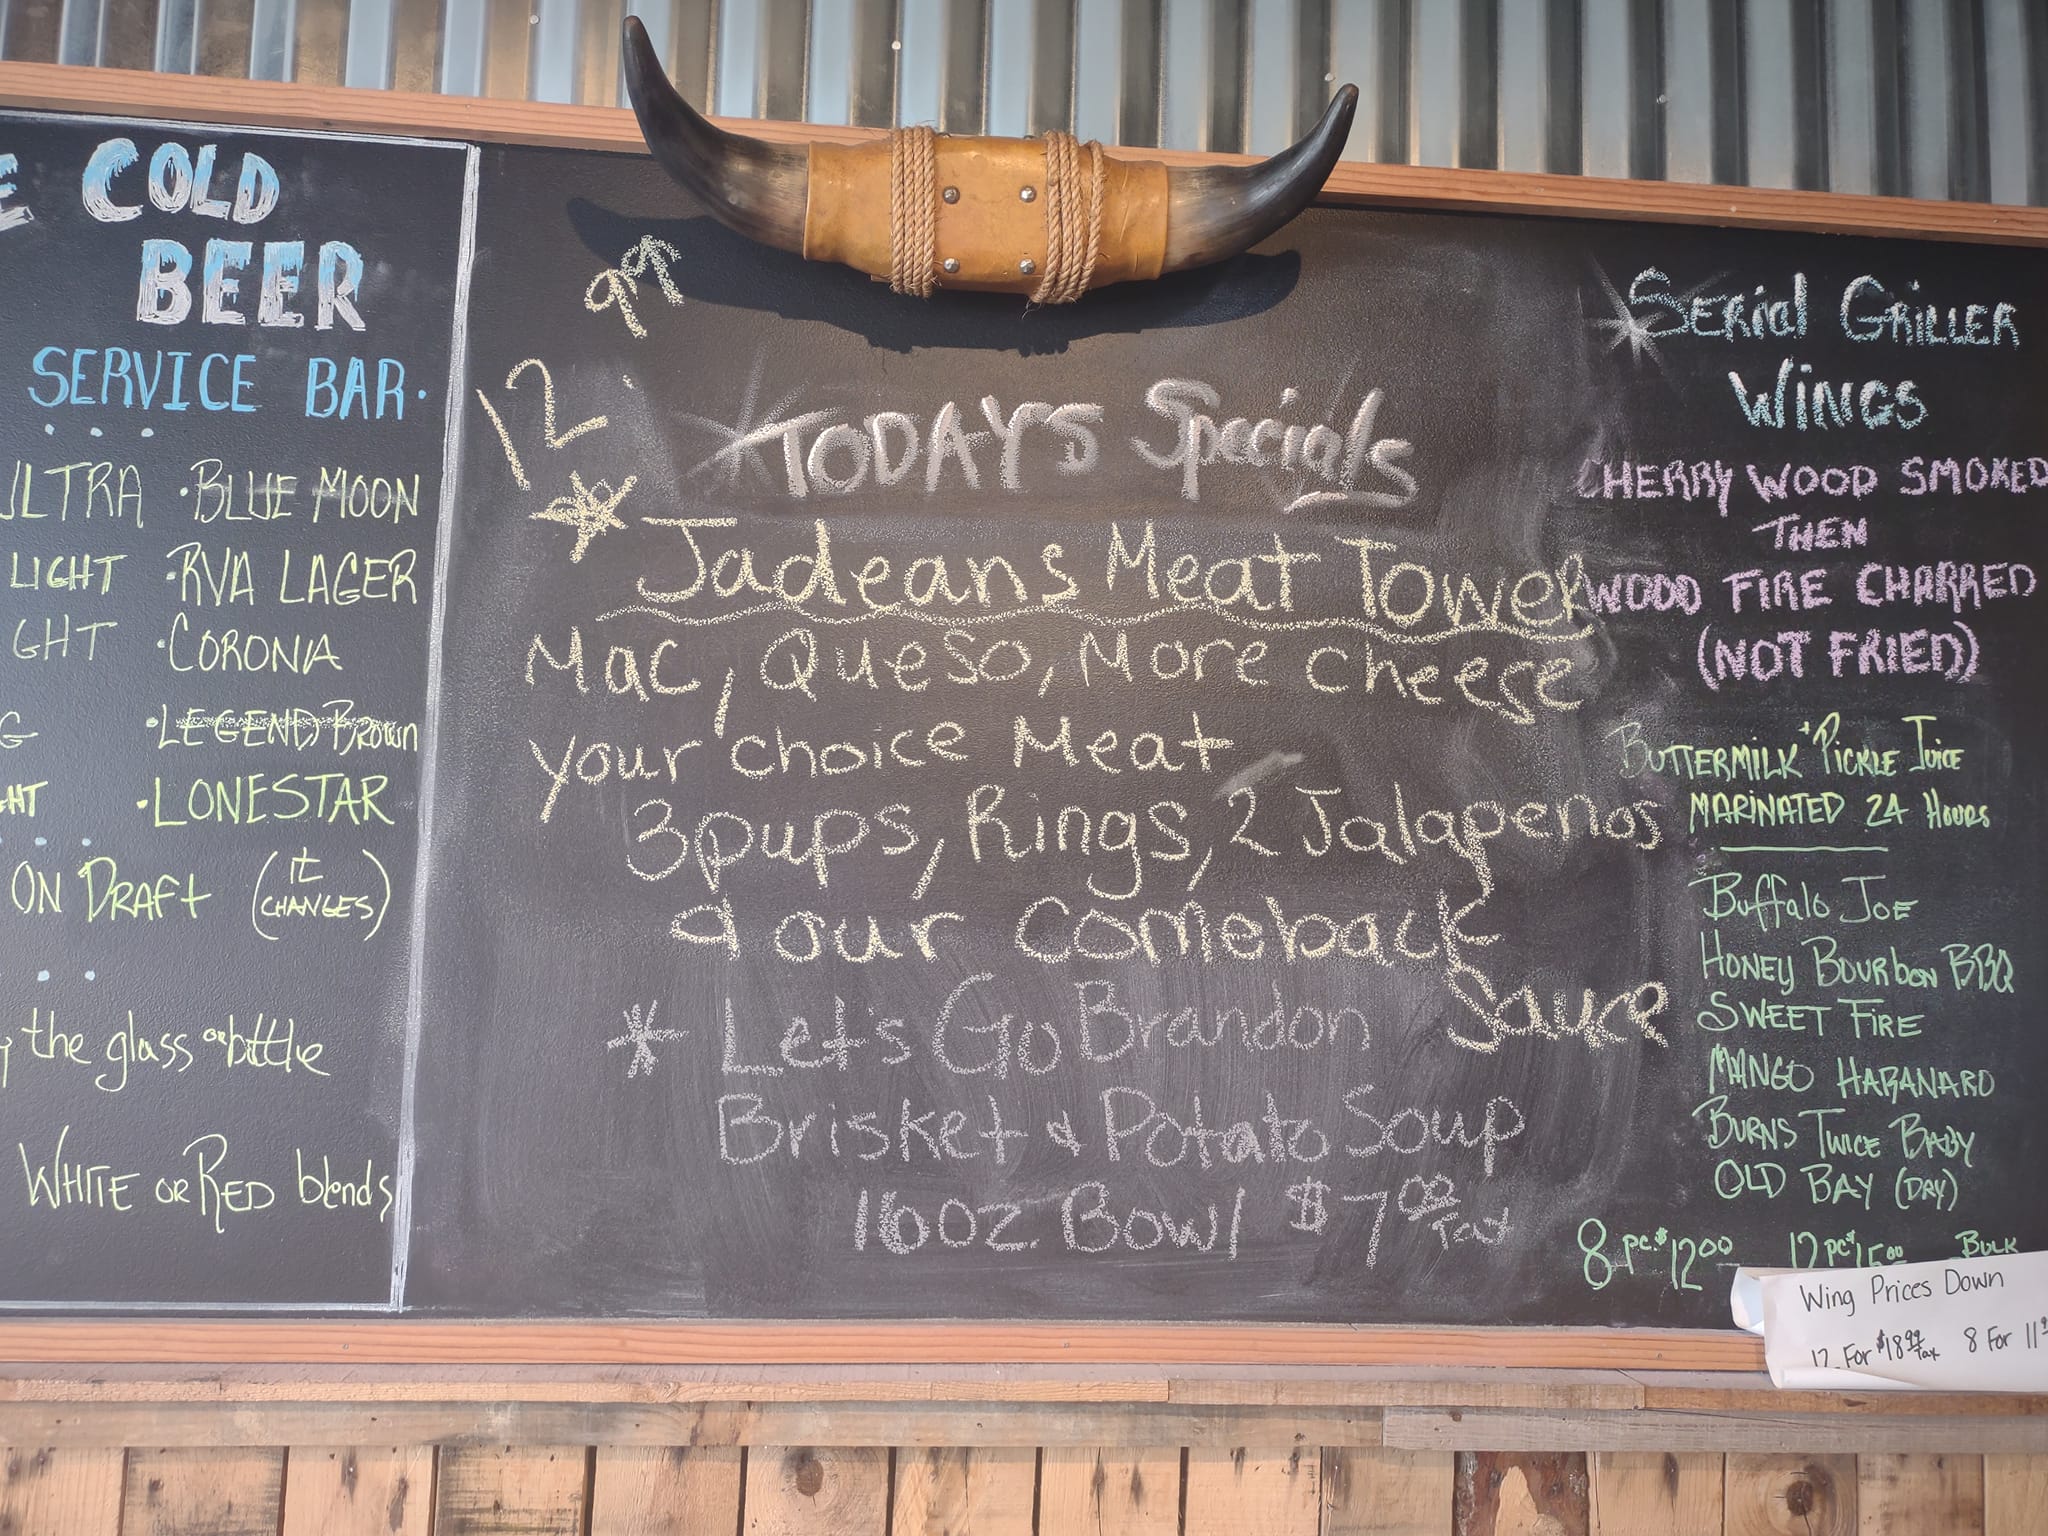 COLD
BEER
SERVICE BAR.
ULTRA · BLUE MOON
LIGHT · RVA LAGER
GHT · CORONA
G · LEGEND Brown
GHT · LONESTAR
ON DRAFT (IT CHANGES)
the glass or bottle
WHITE OR RED blends
12. 99
TODAY'S Specials
* Jadeans Meat Tower
Mac, Queso, More cheese
your choice Meat
3 pups, Rings, 2 Jalapenos
& our Comeback
Sauce
* Let's Go Brandon
Brisket & Potato Soup
16oz Bowl $7.00
SERial GRILLER
WINGS
CHERRY WOOD SMOKED
THEN
WOOD FIRE CHARRED
(NOT FRIED)
BUTTERMILK + PICKLE JUICE
MARINATED 24 HOURS
Buffalo JOE
HONEY BOURBON BBQ
SWEET FIRE
MANGO HABANARO
BURNS TWICE BABY
OLD BAY (DRY)
8 pc. $12.00 12 pc $15.00 BULK
Wing Prices Down
12 For $18.99 tax 8 For 11.9